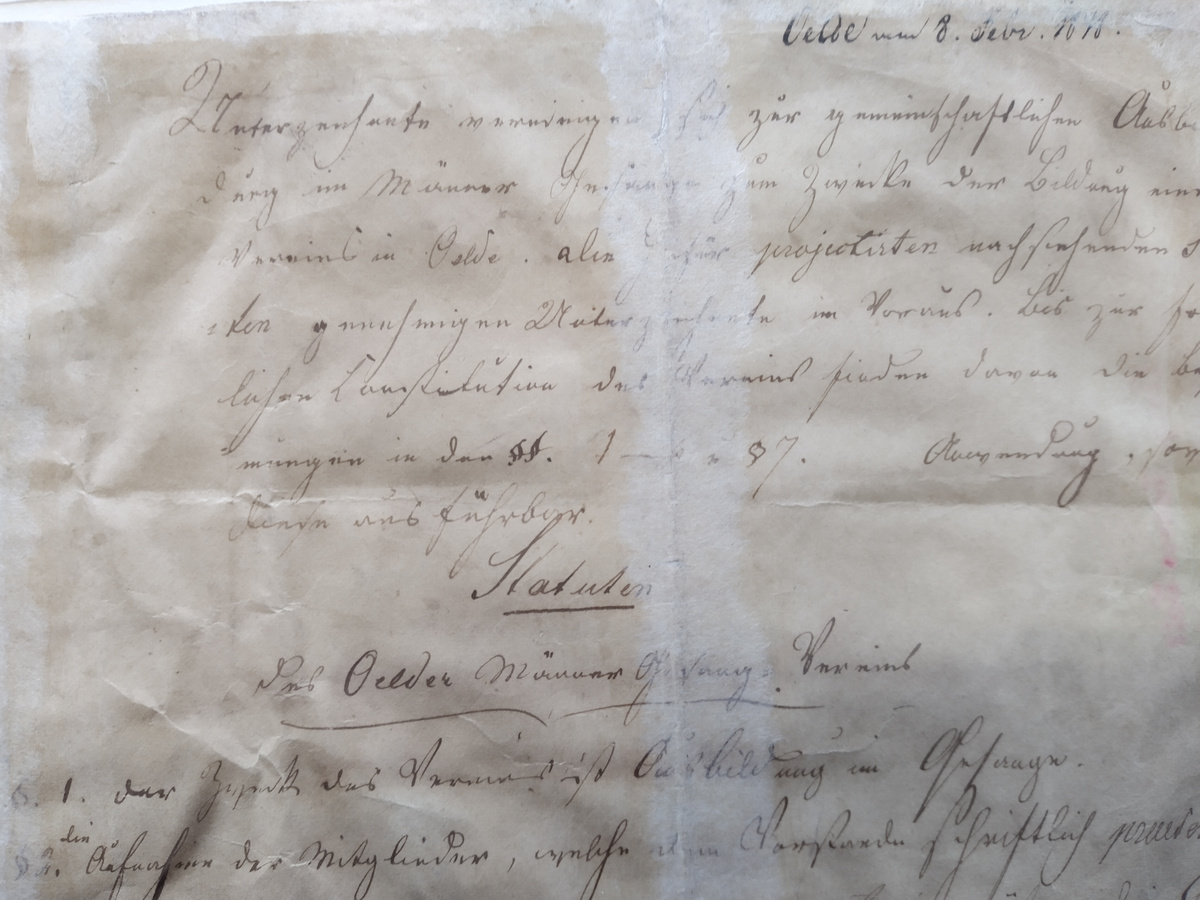 Oelde am 8. Febr. 1878.
Unterzeichnete vereinigen sich zur gemeinschaftlichen Ausbi
dung im Männer Gesange zum Zwecke der Bildung eine
Vereins in Oelde. projectirten nachstehenden
genehmigen Unterzeichnete im Voraus. Bis zur
lichen Constitution des Vereins finden davon die be
mungen in den §§. 1 37. Anwendung, sow
diese ausführbar.
Statuten
des Oelder Männer Gesang- Vereins
§. 1. der Zweck des Vereins ist Ausbildung im Gesange.
§ 2. die Aufnahme der Mitglieder, welche dem Vorstande schriftlich